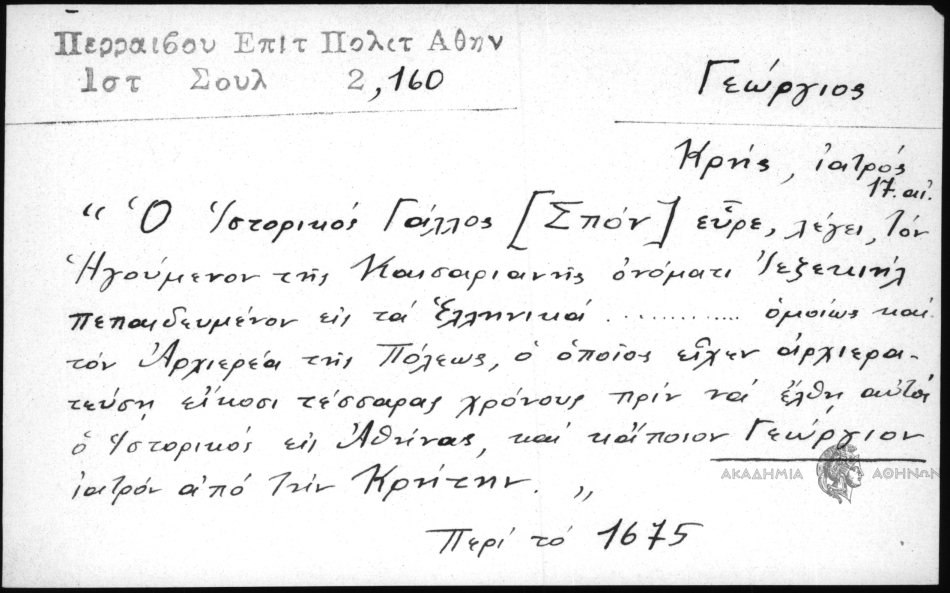 Περραιβου Επιτ Πολιτ Αθην
Ιστ Σουλ 2,160
Γεώργιος
Κρής, ἰατρός
17. αἰ.
“Ὁ Ἱστορικός Γάλλος [Σπόν] εὗρε, λέγει, τόν
Ἡγούμενον τῆς Καισαριανῆς ὀνόματι Ἰεζεκιήλ
πεπαιδευμένον εἰς τά Ἑλληνικά ............ ὁμοίως καί
τόν Ἀρχιερέα τῆς Πόλεως, ὁ ὁποῖος εἶχεν ἀρχιερα-
τεύση εἴκοσι τέσσαρας χρόνους πρίν νά ἔλθη αὐτός
ὁ Ἱστορικός εἰς Ἀθήνας, καί κἄποιον Γεώργιον
ἰατρόν ἀπό τήν Κρήτην. „
ΑΚΑΔΗΜΙΑ ΑΘΗΝΩΝ
Περί τό 1675